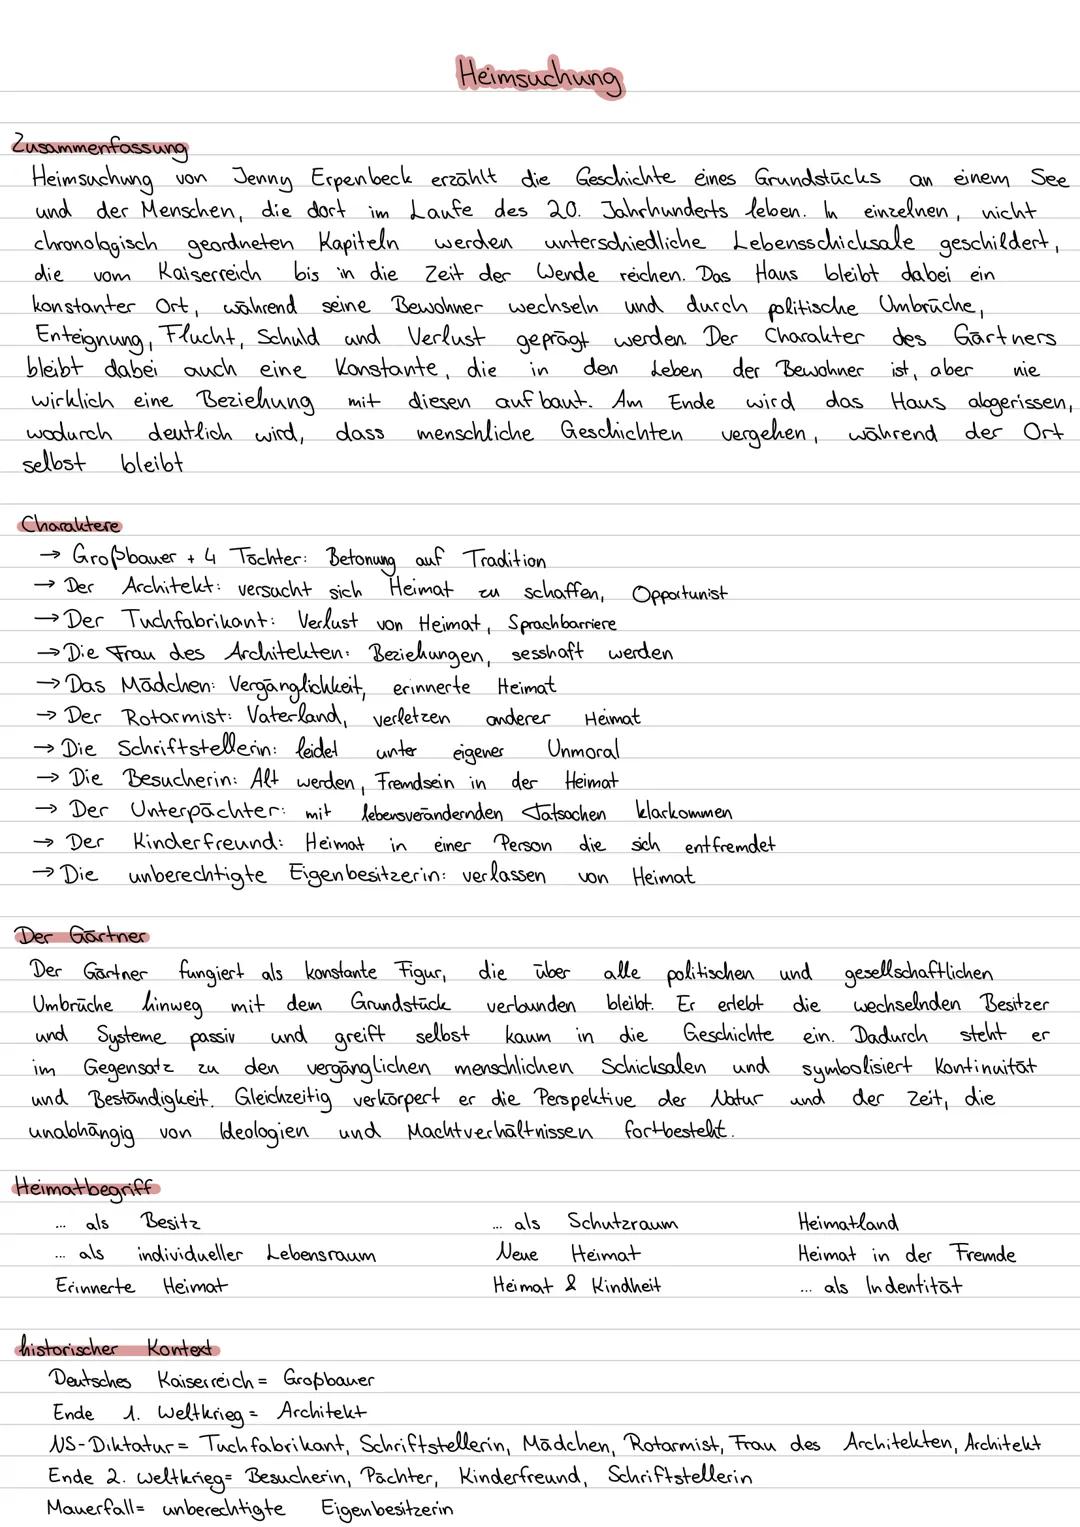 Heimsuchung
Zusammenfassung
Heimsuchung von Jenny Erpenbeck erzählt die Geschichte eines Grundstücks an einem See
und der Menschen, die dort im Laufe des 20. Jahrhunderts leben. In einzelnen, nicht
chronologisch geordneten Kapiteln werden unterschiedliche Lebensschicksale geschildert,
die vom Kaiserreich bis in die Zeit der Wende reichen. Das Haus bleibt dabei ein
konstanter Ort, während seine Bewohner wechseln und durch politische Umbrüche,
Enteignung, Flucht, Schuld und Verlust geprägt werden. Der Charakter des Gärtners
bleibt dabei auch eine Konstante, die in den Leben der Bewohner ist, aber nie
wirklich eine Beziehung mit diesen aufbaut. Am Ende wird das Haus abgerissen,
wodurch deutlich wird, dass menschliche Geschichten vergehen, während der Ort
selbst bleibt
Charaktere
→ Großbauer + 4 Töchter: Betonung auf Tradition
→ Der Architekt: versucht sich Heimat zu schaffen, Opportunist
→ Der Tuchfabrikant: Verlust von Heimat, Sprachbarriere
→ Die Frau des Architekten: Beziehungen, sesshaft werden
→ Das Mädchen: Vergänglichkeit, erinnerte Heimat
→ Der Rotarmist: Vaterland, verletzen anderer Heimat
→ Die Schriftstellerin: leidet unter eigener Unmoral
→ Die Besucherin: Alt werden, Fremdsein in der Heimat
→ Der Unterpächter: mit lebensverändernden Tatsachen klarkommen
→ Der Kinderfreund: Heimat in einer Person die sich entfremdet
→ Die unberechtigte Eigenbesitzerin: verlassen von Heimat
Der Gärtner
Der Gärtner fungiert als konstante Figur, die über alle politischen und gesellschaftlichen
Umbrüche hinweg mit dem Grundstück verbunden bleibt. Er erlebt die wechselnden Besitzer
und Systeme passiv und greift selbst kaum in die Geschichte ein. Dadurch steht er
im Gegensatz zu den vergänglichen menschlichen Schicksalen und symbolisiert Kontinuität
und Beständigkeit. Gleichzeitig verkörpert er die Perspektive der Natur und der Zeit, die
unabhängig von Ideologien und Machtverhältnissen fortbesteht.
Heimatbegriff
... als Besitz ... als Schutzraum Heimatland
... als individueller Lebensraum Neue Heimat Heimat in der Fremde
Erinnerte Heimat Heimat & Kindheit ... als Indentität
historischer Kontext
Deutsches Kaiserreich = Großbauer
Ende 1. Weltkrieg = Architekt
NS-Diktatur = Tuchfabrikant, Schriftstellerin, Mädchen, Rotarmist, Frau des Architekten, Architekt
Ende 2. Weltkrieg= Besucherin, Pächter, Kinderfreund, Schriftstellerin
Mauerfall= unberechtigte Eigenbesitzerin